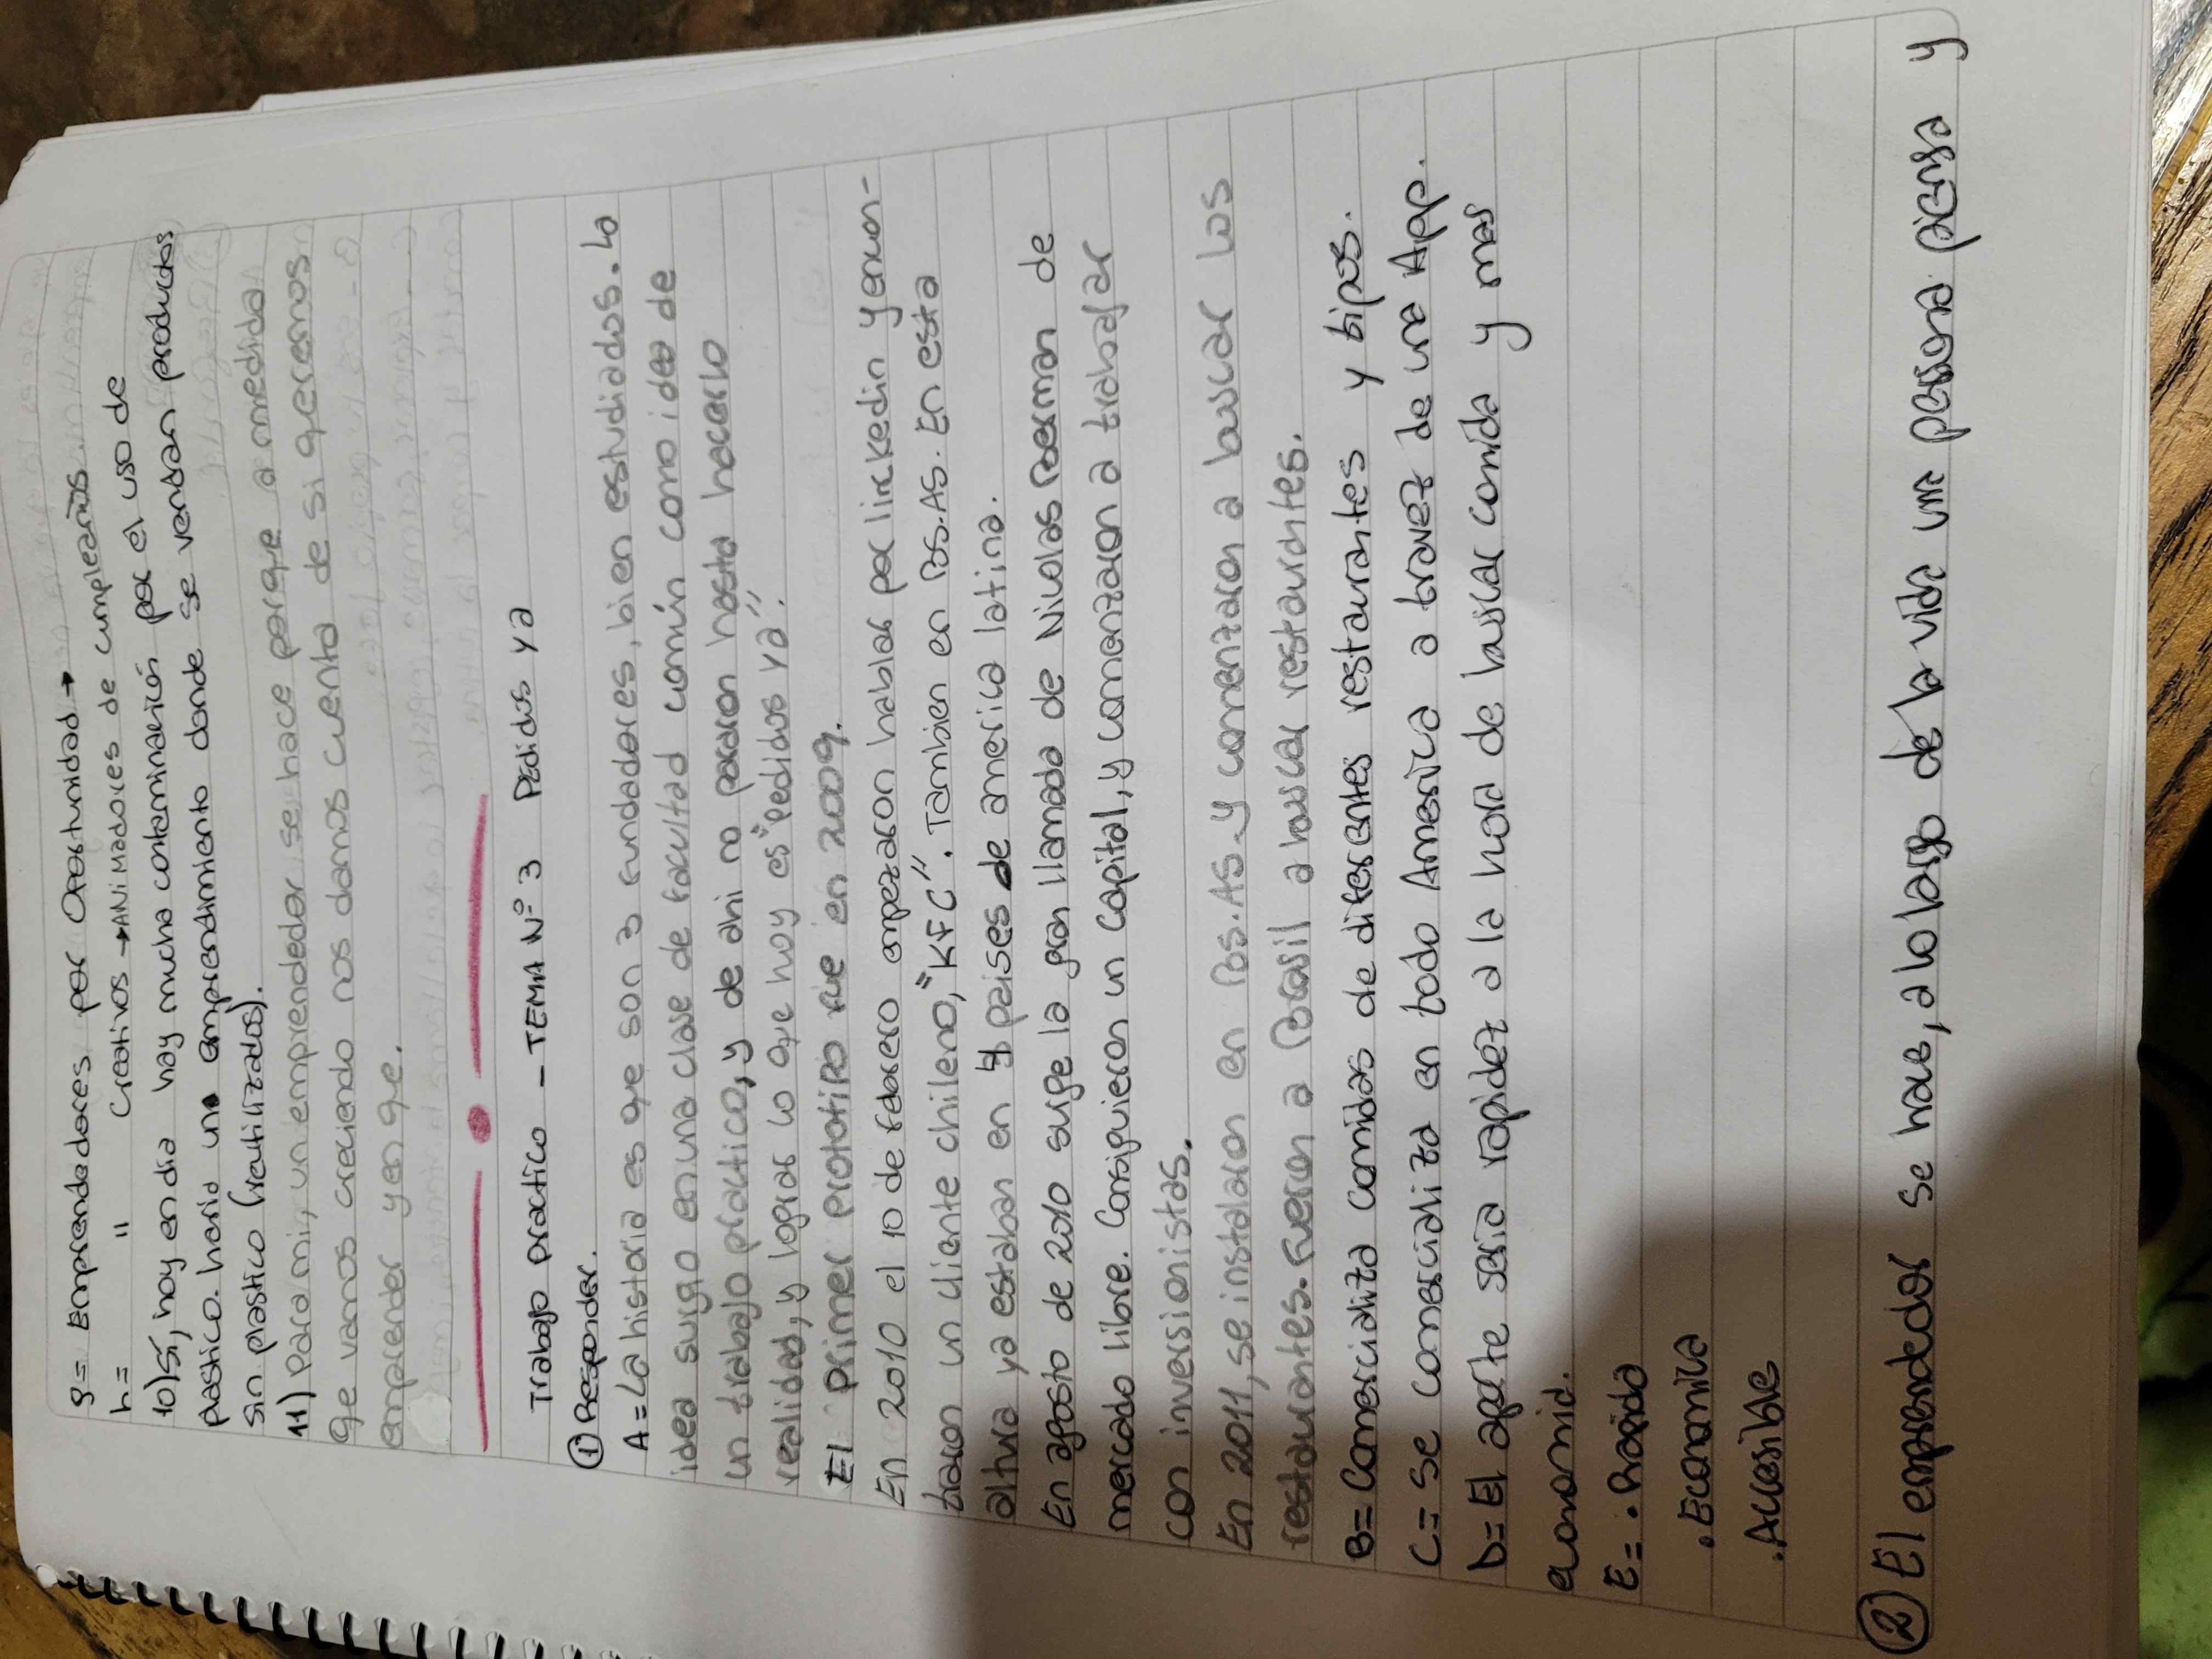 g= Emprendedores por Oportunidad→
h= " Creativos →ANiMadores de cumpleaños.
10) Sí, hoy en dia hay mucha contaminación por el uso de
plastico. haria un emprendimiento donde se vendan productos
sin plastico (reutilizados).
11) Para mi, un emprendedor se hace porque a medida
que vamos creciendo nos damos cuenta de si queremos
emprender y en que.
Trabajo practico - TEMA N° 3 Pedidos Ya
① Responder.
A= La historia es que son 3 fundadores, bien estudiados. La
idea surgo en una clase de facultad común como idea de
un trabajo practico, y de ahi no pararon hasta hacerlo
realidad, y lograr lo que hoy es "Pedidos Ya".
El primer prototipo fue en 2009.
En 2010 el 10 de febrero empezaron hablar por linckedin y encon-
traron un cliente chileno, "KFC". Tambien en Bs.AS. En esta
altura ya estaban en 4 paises de america latina.
En agosto de 2010 surge la gran llamada de Nicolas Berman de
mercado libre. Consiguieron un capital, y comenzaron a trabajar
con inversionistas.
En 2011, se instalaron en Bs.AS. y comenzaron a buscar los
restaurantes. Fueron a Brasil a buscar restaurantes.
B= Comercializa comidas de diferentes restaurantes y tipos.
C= Se comercializa en todo America a travez de una App.
D= El aporte seria rapidez a la hora de buscar comida y mas
economia.
E= . Rapida
. Economica
. Accesible
② El emprendedor se hace, a lo largo de la vida una persona piensa y